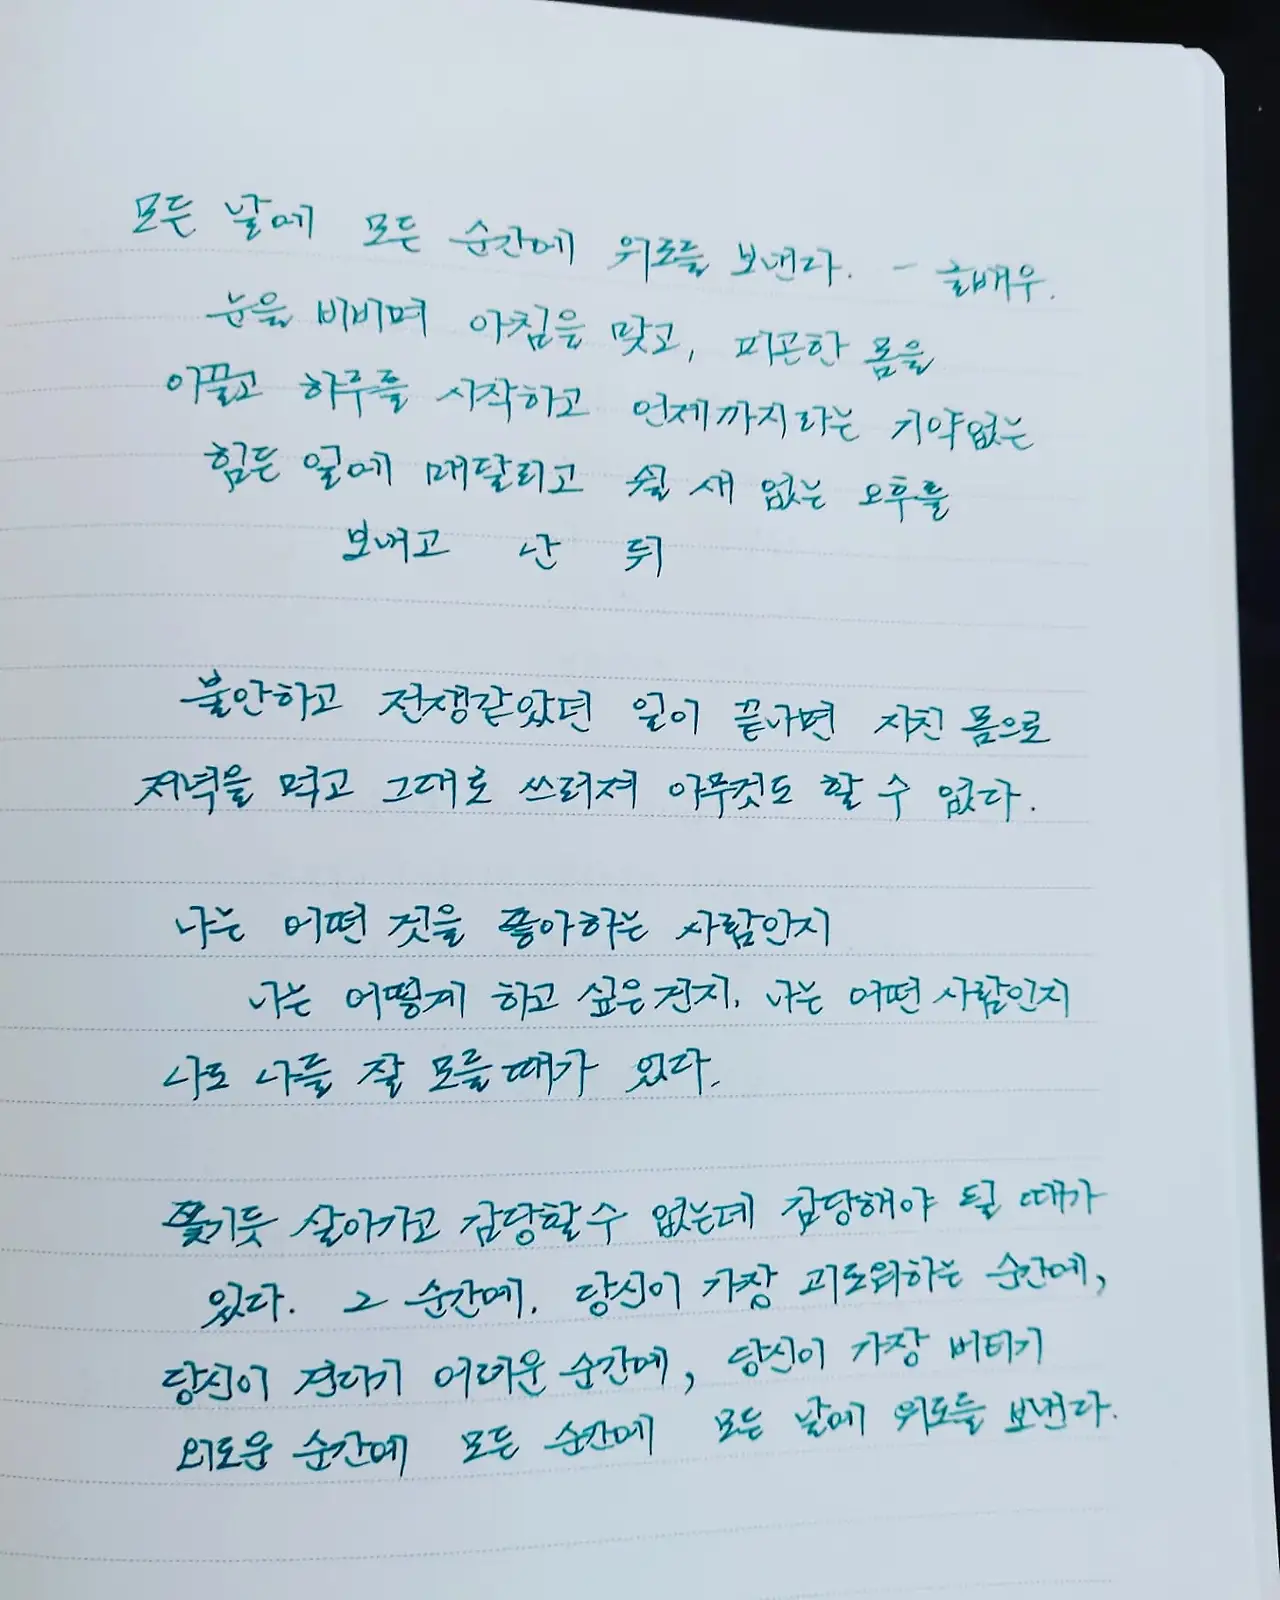 모든 날에 모든 순간에 위로를 보낸다. - 글배우.
눈을 비비며 아침을 맞고, 피곤한 몸을
이끌고 하루를 시작하고 언제까지라는 기약없는
힘든 일에 매달리고 쉴 새 없는 오후를
보내고 난 뒤
불안하고 전쟁같았던 일이 끝나면 지친 몸으로
저녁을 먹고 그대로 쓰러져 아무것도 할 수 없다.
나는 어떤 것을 좋아하는 사람인지
나는 어떻게 하고 싶은건지. 나는 어떤 사람인지
나도 나를 잘 모를 때가 있다.
쫓기듯 살아가고 감당할 수 없는데 감당해야 될 때가
있다. 그 순간에. 당신이 가장 괴로워하는 순간에,
당신이 견디기 어려운 순간에, 당신이 가장 버티기
외로운 순간에 모든 순간에 모든 날에 위로를 보낸다.